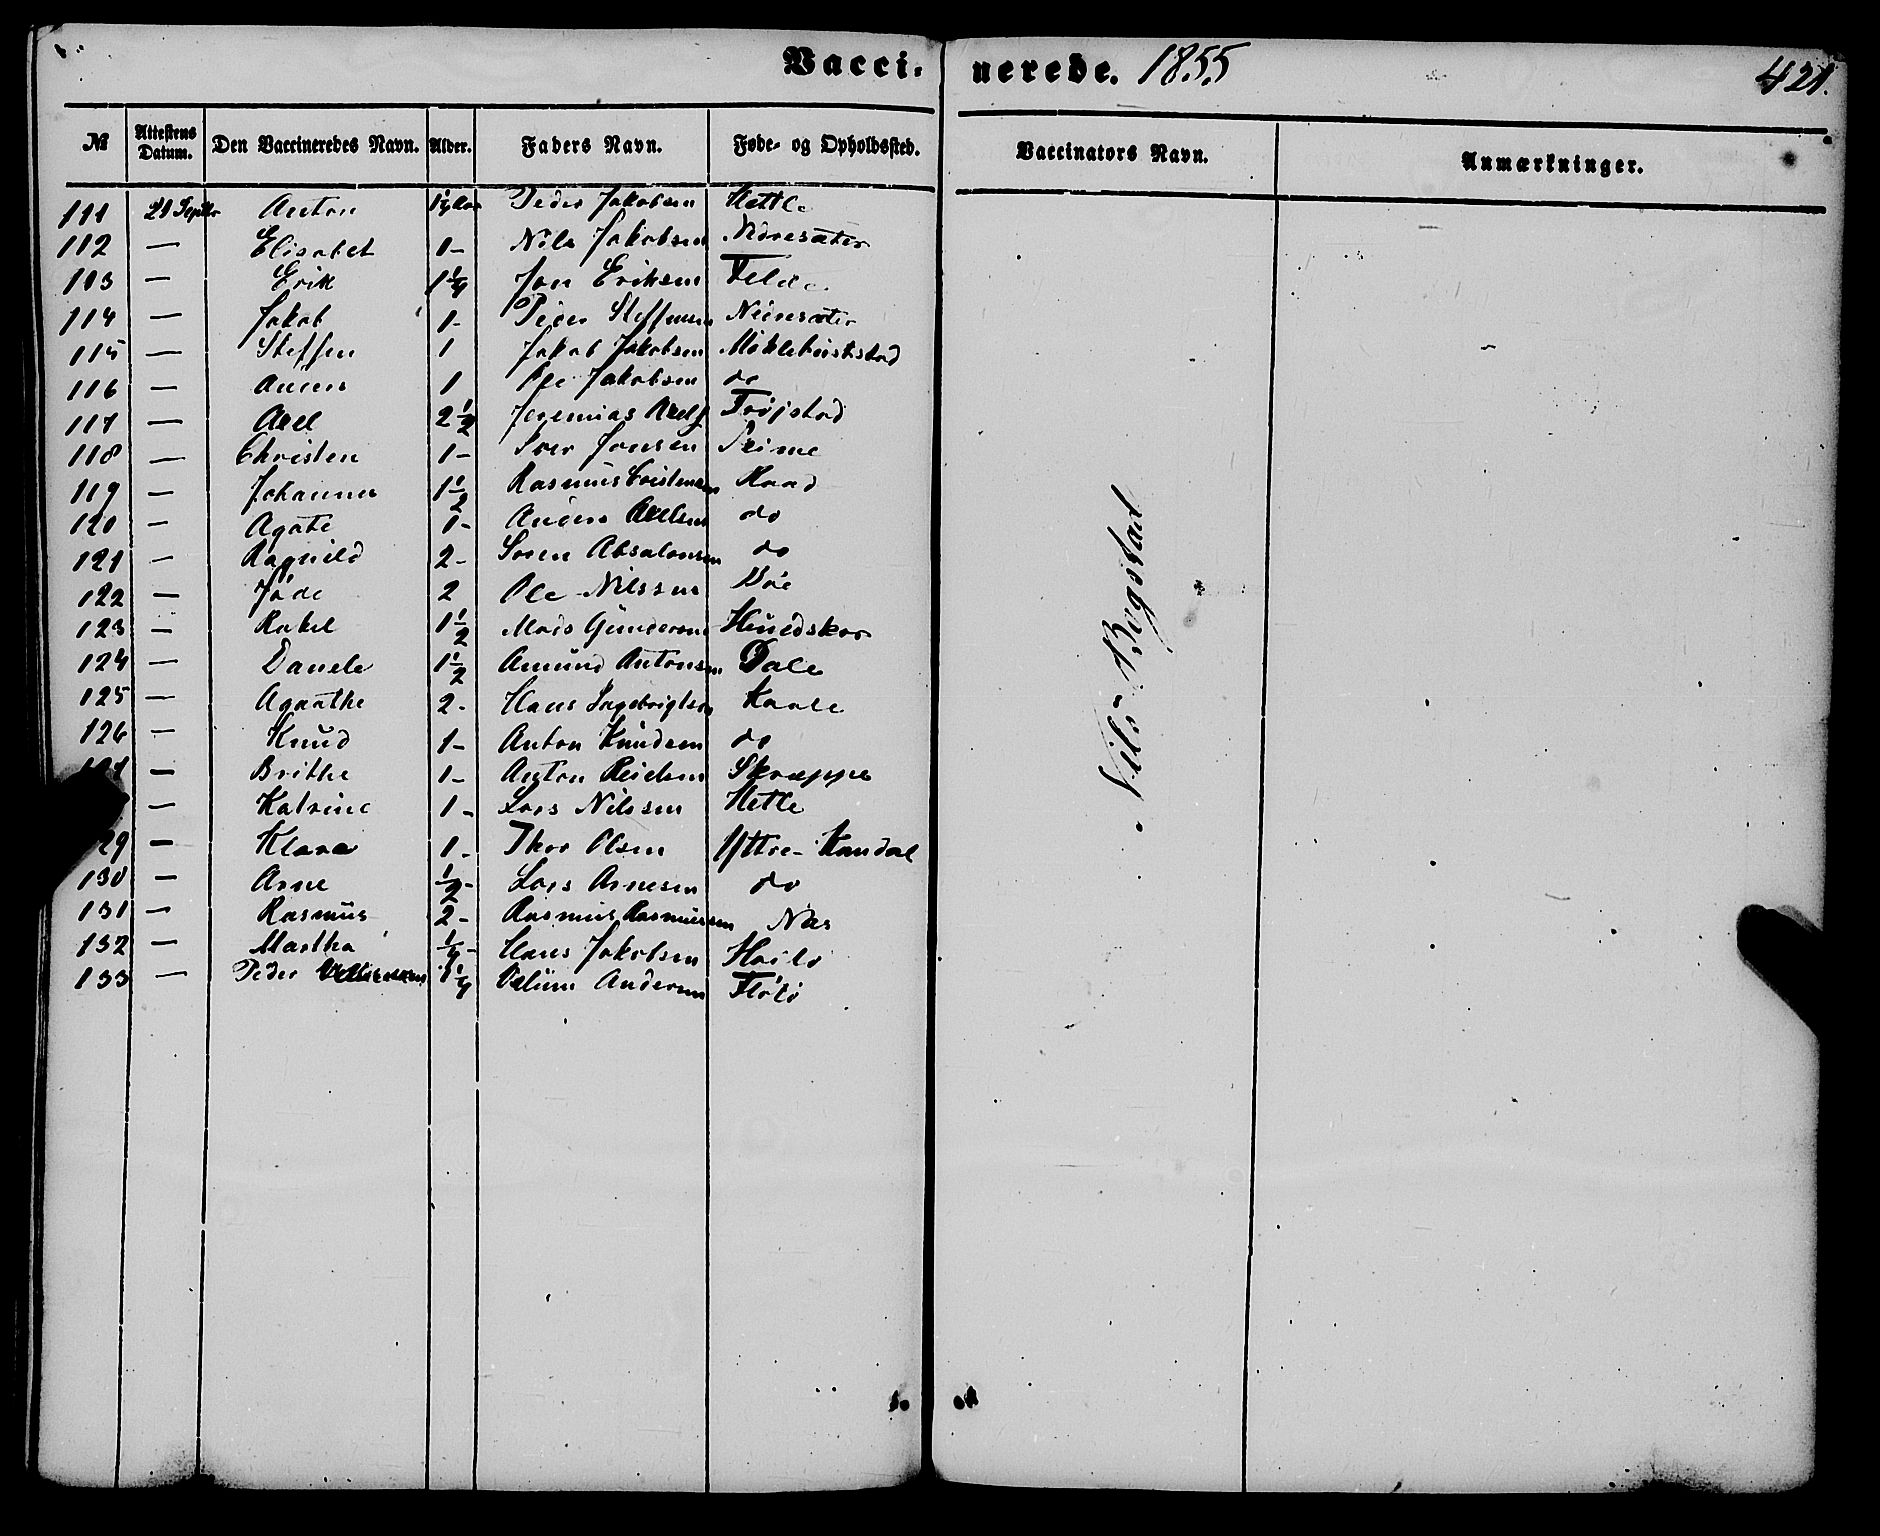 Vacci- nerede. 1855 421.
№ Attestens Datum. Den Vaccineredes Navn. Alder. Faders Navn. Føde- og Opholdssted. Vaccinators Navn. Anmærkninger.
111 21 Septbr Anton Peder Jakobsen Hetle
112 — Elisabet 1- Nils Jakobsen Nedresæter
113 — Erik 1¼ Jon Eriksen Felde
114 — Jakob 1- Peder Steffensen Nedresæter
115 — Steffen 1 Jakob Jakobsen Myklebustsstad
116 — Anders 1 Ole Jakobsen do
117 — Axel 2½ Jeremias Axels Frøjstad
118 — Christen 1- Iver Jonsen Seime
119 — Johannes 1½ Rasmus Cristensen Kaad
120 — Agate 1- Anders Axelsen do
121 — Ragnild 2- Søren Absalonsen do
122 — 2 Ole Nilssen
123 — Rakel 1½ Mads Gundersen Hundskor
124 — Daniele 1½ Amund Antonsen Dale
125 — Agaathe 2- Hans Ingebrigtsen
126 — Knud 1- Anton Knudsen do
— Brithe 1- Anton Skræppe
— Katrine 1- Lars Nilssen Hetle
29 — Klara 1- Thor Olsen Yttre-Kandal
130 — Arne ½- Lars Arnesen do
131 — Rasmus 2- Rasmus Rasmussen Nas
132 — Martha ¼- Hans Jakobsen
133 — Peder 1¼ Andersen Florø
Nils Bogstad